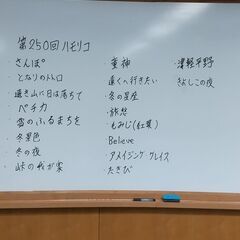 第250回ハモリコ
・さんぽ
・となりのトトロ
・遠き山に日は落ちて
・ペチカ
・雪のふるまちを
・冬景色
・冬の夜
・峠の我が家
・童神
・遠くへ行きたい
・冬の星座
・旅愁
・もみじ(紅葉)
・Believe
・アメイジング・グレイス
・たきび
・津軽平野
・きよしこの夜